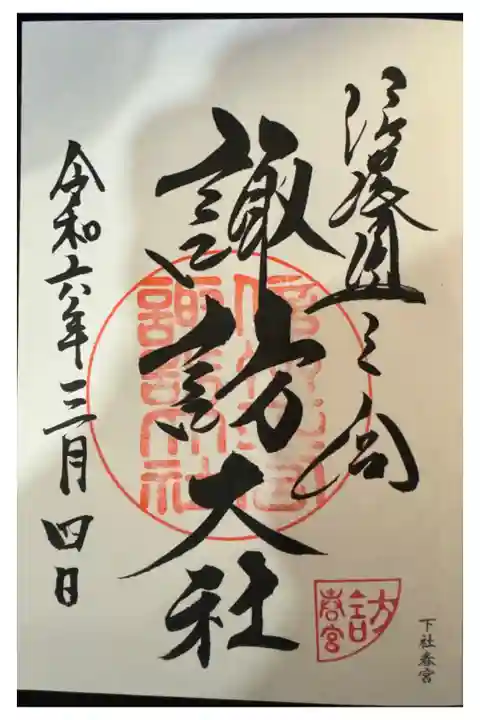 信濃國一之宮
諏訪大社
令和六年三月四日
訪
春宮
下社春宮